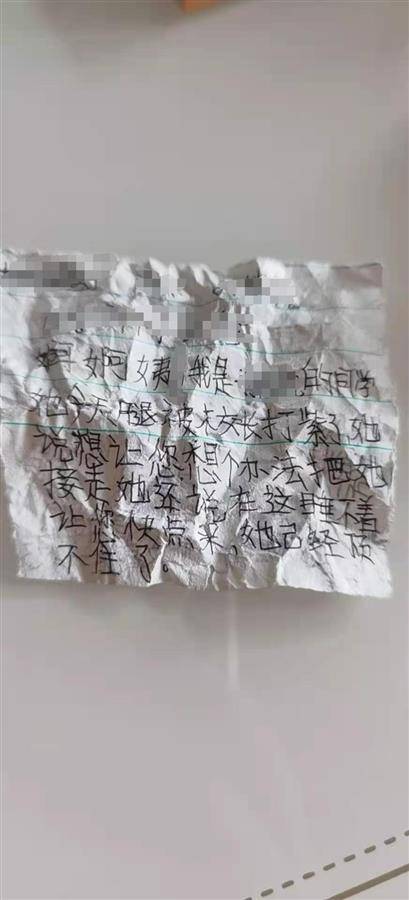 阿姨,我是 的同学
她今天腿被 长打紫了她
说想让您想个办法把她
接走她还说在这睡不着
让您快点来,她已经顶
不住了。